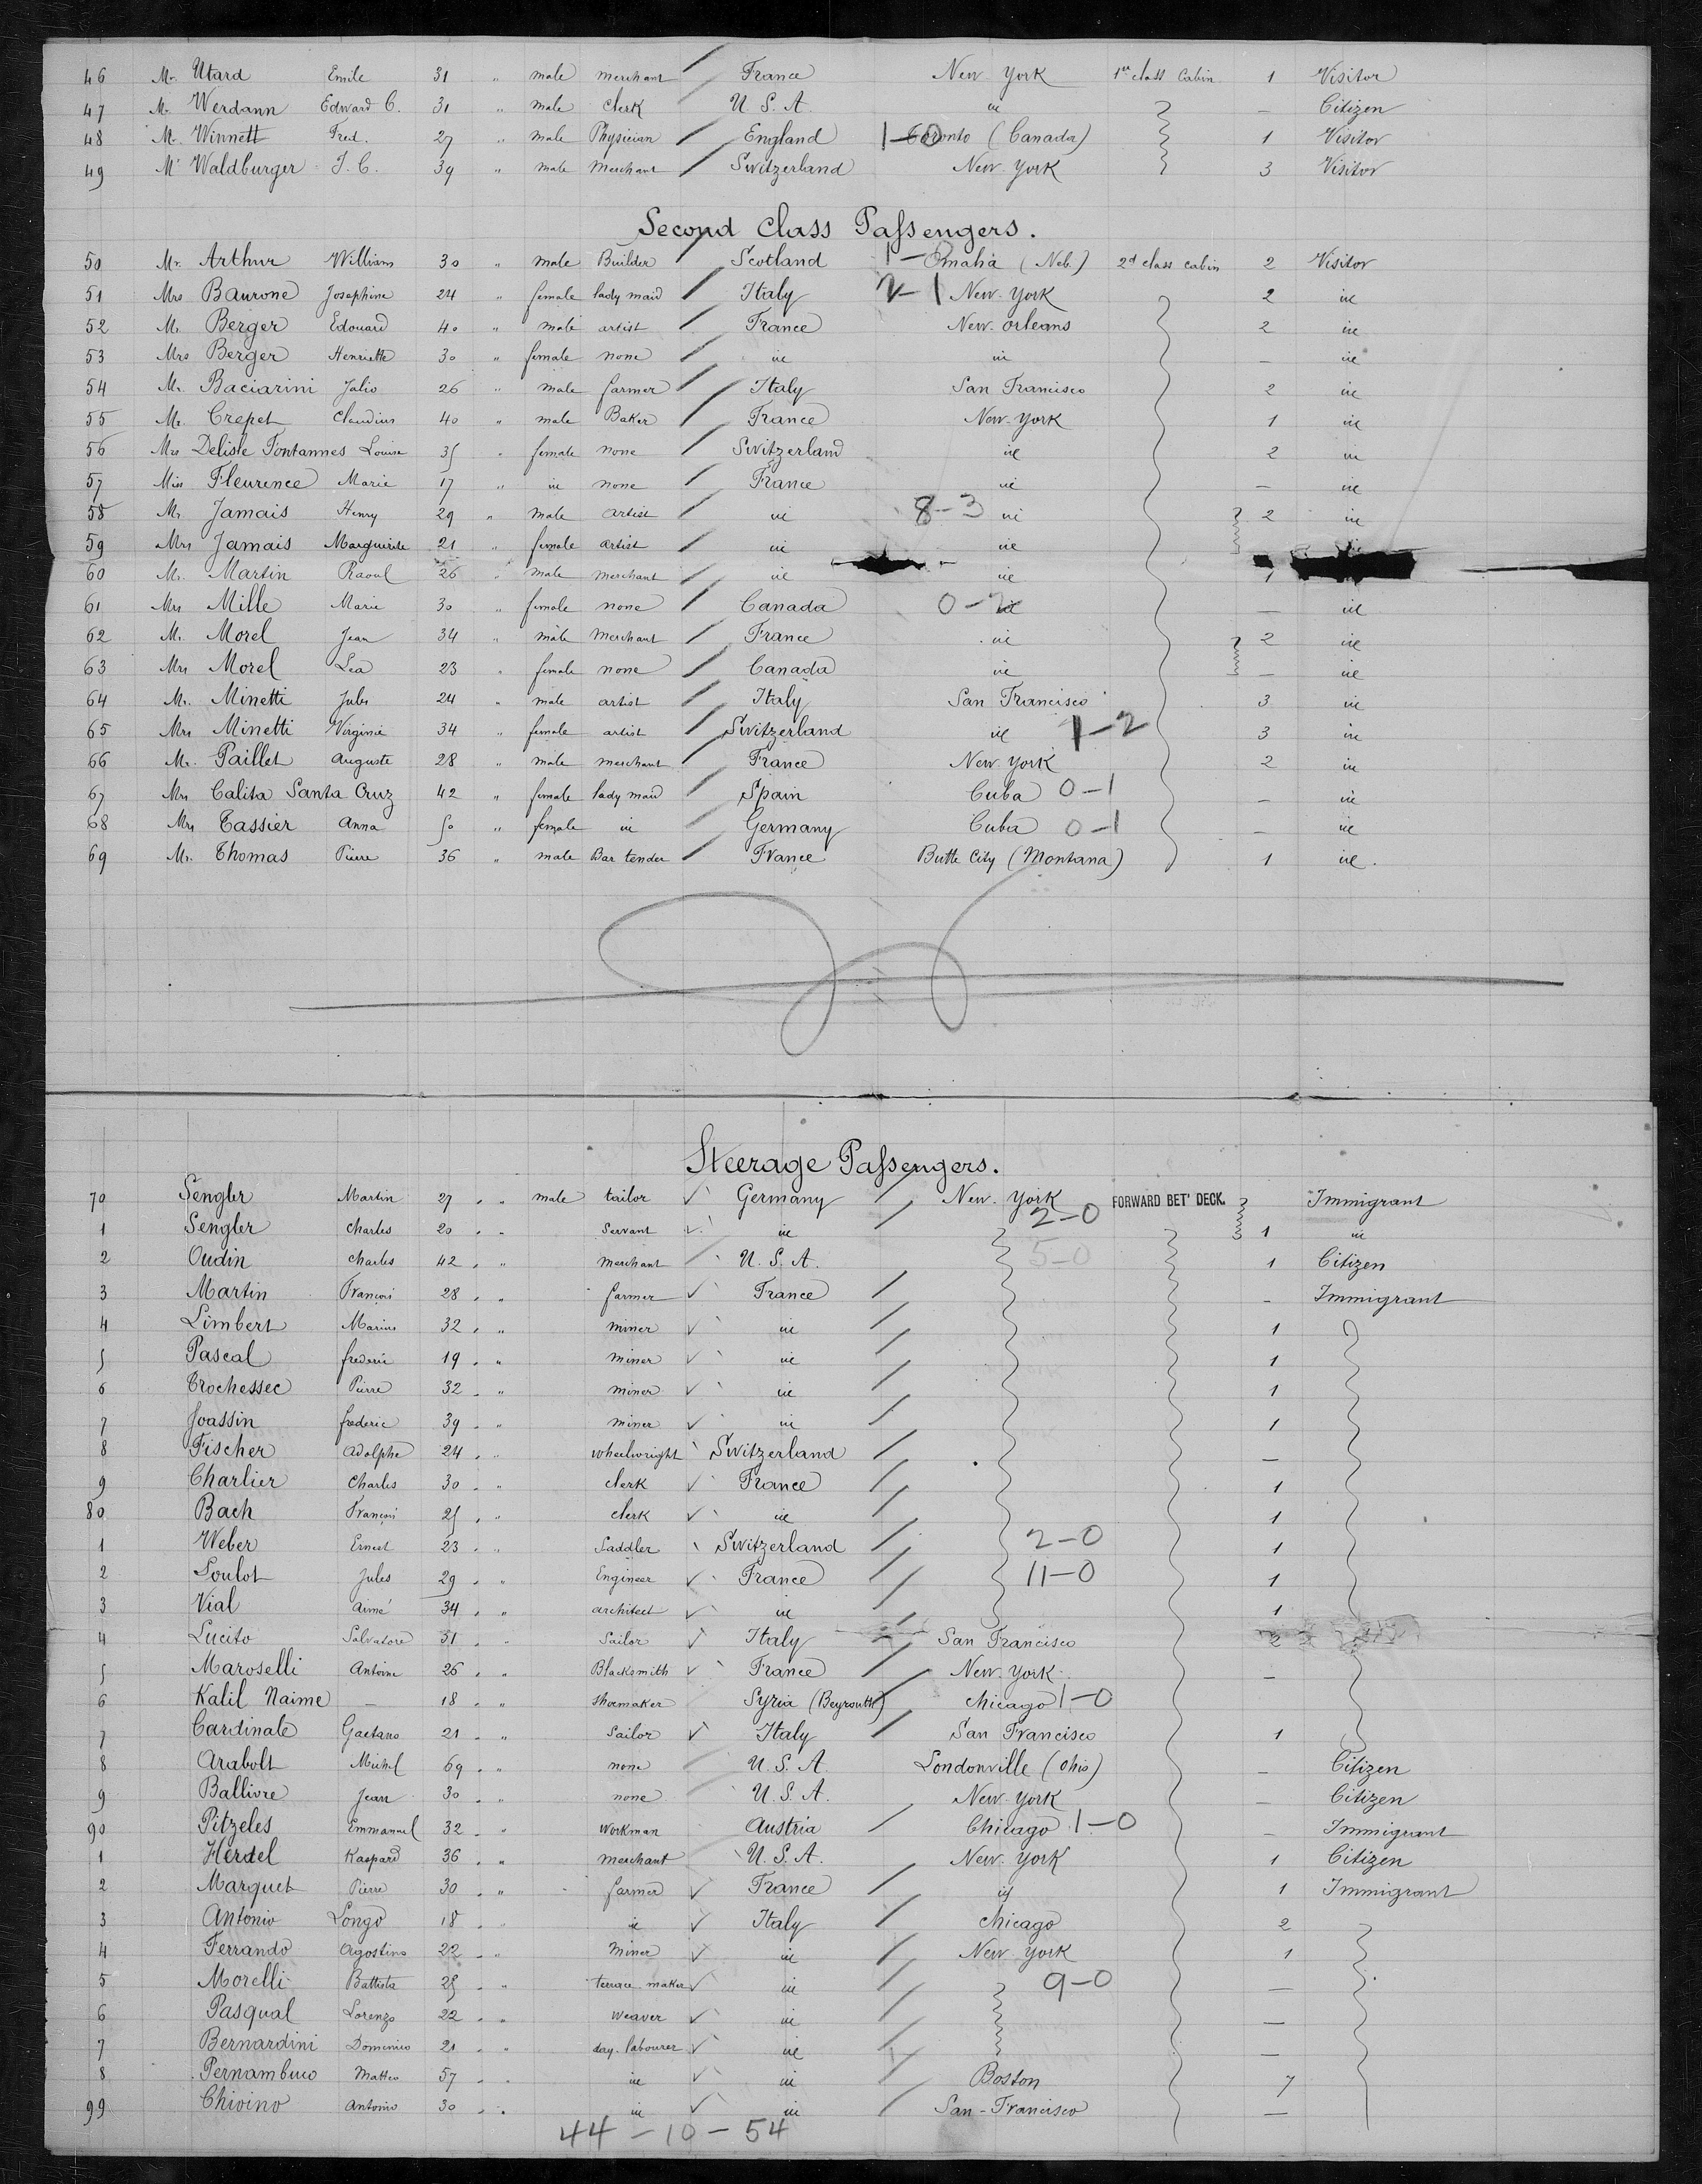 46 Mr. Utard Emile 31 " male merchant France New-York 1re class Cabin 1 Visitor
47 Mr. Werdann Edward C. 31 " male clerk U. S. A. id — Citizen
48 Mr. Winnett Fred. 27 " male Physician England 1-0 Toronto (Canada) 1 Visitor
49 Mr Waldburger J. C. 39 " male merchant Switzerland New-York 3 Visitor
Second Class Passengers.
50 Mr. Arthur William 30 " male Builder Scotland 1-0 Omaha (Neb.) 2d class cabin 2 Visitor
51 Mrs Baurone Josephine 24 " female lady maid Italy 2-1 New-York 2 id
52 Mr. Berger Edouard 40 " male artist France New-Orleans 2 id
53 Mrs Berger Henriette 30 " female none id id — id
54 Mr. Baciarini Julio 26 " male farmer Italy San Francisco 2 id
55 Mr. Crepet Claudius 40 " male Baker France New-York 1 id
56 Mrs Delisle Fontannes Louise 35 " female none Switzerland id 2 id
57 Miss Fleurence Marie 17 " id none France id — id
58 Mr. Jamais Henry 29 " male artist id 8-3 id 2 id
59 Mrs Jamais Marguerite 21 " female artist id id
60 Mr. Martin Raoul 26 " male merchant id id 1
61 Mrs Mille Marie 30 " female none Canada 0-2 id — id
62 Mr. Morel Jean 34 " male merchant France id 2 id
63 Mrs Morel Lea 23 " female none Canada id — id
64 Mr. Minetti Jules 24 " male artist Italy San Francisco 3 id
65 Mrs Minetti Virginie 34 " female artist Switzerland id 1-2 3 id
66 Mr. Paillet Auguste 28 " male merchant France New-York 2 id
67 Mrs Calita Santa Cruz 42 " female lady maid Spain Cuba 0-1 — id
68 Mrs Tassier Anna 50 " female id Germany Cuba 0-1 — id
69 Mr. Thomas Pierre 36 " male Bar tender France Butte City (Montana) 1 id.
Steerage Passengers.
70 Sengler Martin 27 " male tailor Germany New-York FORWARD BET' DECK. Immigrant
1 Sengler Charles 20 " Servant id 2-0 1 id
2 Oudin Charles 42 " merchant U. S. A. 5-0 1 Citizen
3 Martin François 28 " farmer France — Immigrant
4 Limbert Marius 32 " miner id 1
5 Pascal frederic 19 " miner id 1
6 Trochessec Pierre 32 " miner id 1
7 Joassin frederic 39 " miner id 1
8 Fischer Adolphe 24 " wheelwright Switzerland —
9 Charlier Charles 30 " clerk France 1
80 Bach François 25 " clerk id 1
1 Weber Ernest 23 " Saddler Switzerland 2-0 1
2 Soulot Jules 29 " Engineer France 11-0 1
3 Vial Aimé 34 " architect id 1
4 Lucito Salvatore 51 " Sailor Italy San Francisco 2
5 Maroselli Antoine 26 " Blacksmith France New-York —
6 Kalil Naime — 18 " shoemaker Syria (Beyrouth) Chicago 1-0
7 Cardinale Gaetano 21 " Sailor Italy San Francisco 1
8 Arabolt Michel 69 " none U. S. A. Londonville (Ohio) — Citizen
9 Ballivre Jean 30 " none U. S. A. New-York — Citizen
90 Pitzeles Emmanuel 32 " Workman Austria Chicago 1-0 — Immigrant
1 Herdel Kaspard 36 " merchant U. S. A. New-York 1 Citizen
2 Marquet Pierre 30 " farmer France id 1 Immigrant
3 Antonio Longo 18 " id Italy Chicago 2
4 Ferrando Agostino 22 " Miner id New-York 1
5 Morelli Battista 25 " terrace maker id 9-0 —
6 Pasqual Lorenzo 22 " weaver id —
7 Bernardini Dominico 21 " day-labourer id —
8 Pernambuco Matteo 57 " id id Boston 7
99 Chivino Antonio 30 " id id San-Francisco —
44-10-54